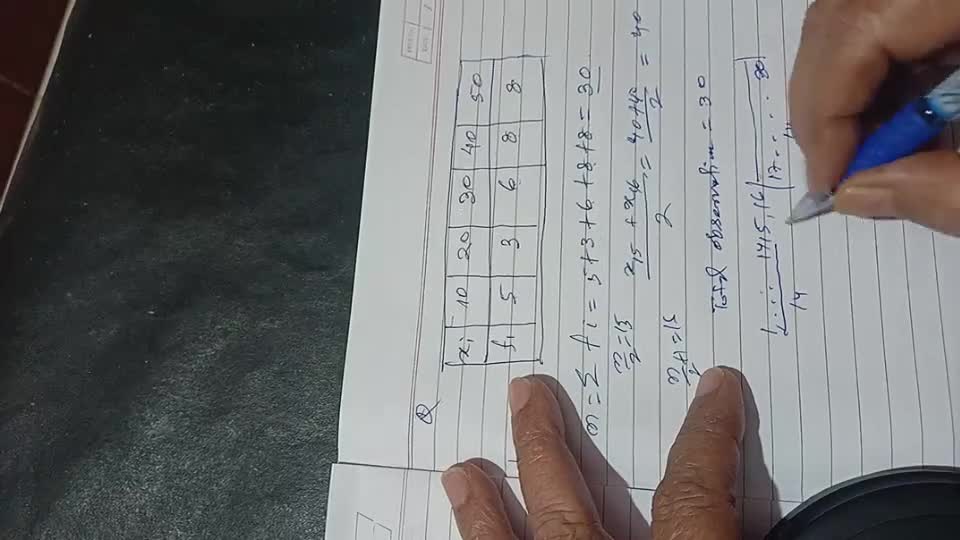 Q
xi 10 20 30 40 50
fi 5 3 6 8 8
n = Σ fi = 5+3+6+8+8 = 30
n/2 = 15
x15 + x16 / 2 = 40+40 / 2 = 40
n/2 +1 = 15
Total observation = 30
1..... 14 15,16 17.... 30
14 14